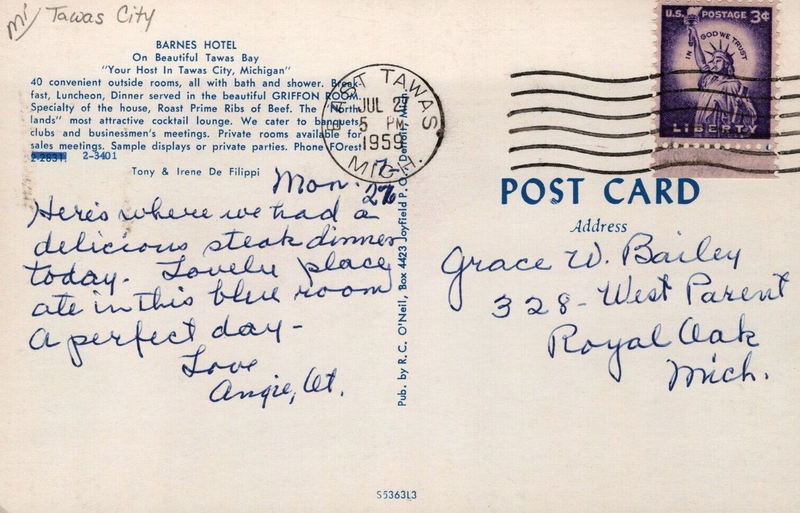 mi/ Tawas City
BARNES HOTEL
On Beautiful Tawas Bay
"Your Host In Tawas City, Michigan"
40 convenient outside rooms, all with bath and shower. Break-
fast, Luncheon, Dinner served in the beautiful GRIFFON ROOM.
Specialty of the house, Roast Prime Ribs of Beef. The "North-
lands" most attractive cocktail lounge. We cater to banquets,
clubs and businessmen's meetings. Private rooms available for
sales meetings. Sample displays or private parties. Phone FOrest
2-2831. 2-3401
Tony & Irene De Filippi
Mon. 7-27
Here's where we had a
delicious steak dinner
today. Lovely place
ate in this blue room
a perfect day -
Love
Angie, Art.
Pub. by R. C. O'Neil, Box 4423 Joyfield P. O., Detroit, Mich.
EAST TAWAS
JUL 27
5 PM
1959
MICH.
U.S. POSTAGE 3¢
IN GOD WE TRUST
LIBERTY
POST CARD
Address
Grace W. Bailey
328 - West Parent
Royal Oak
Mich.
S5363L3